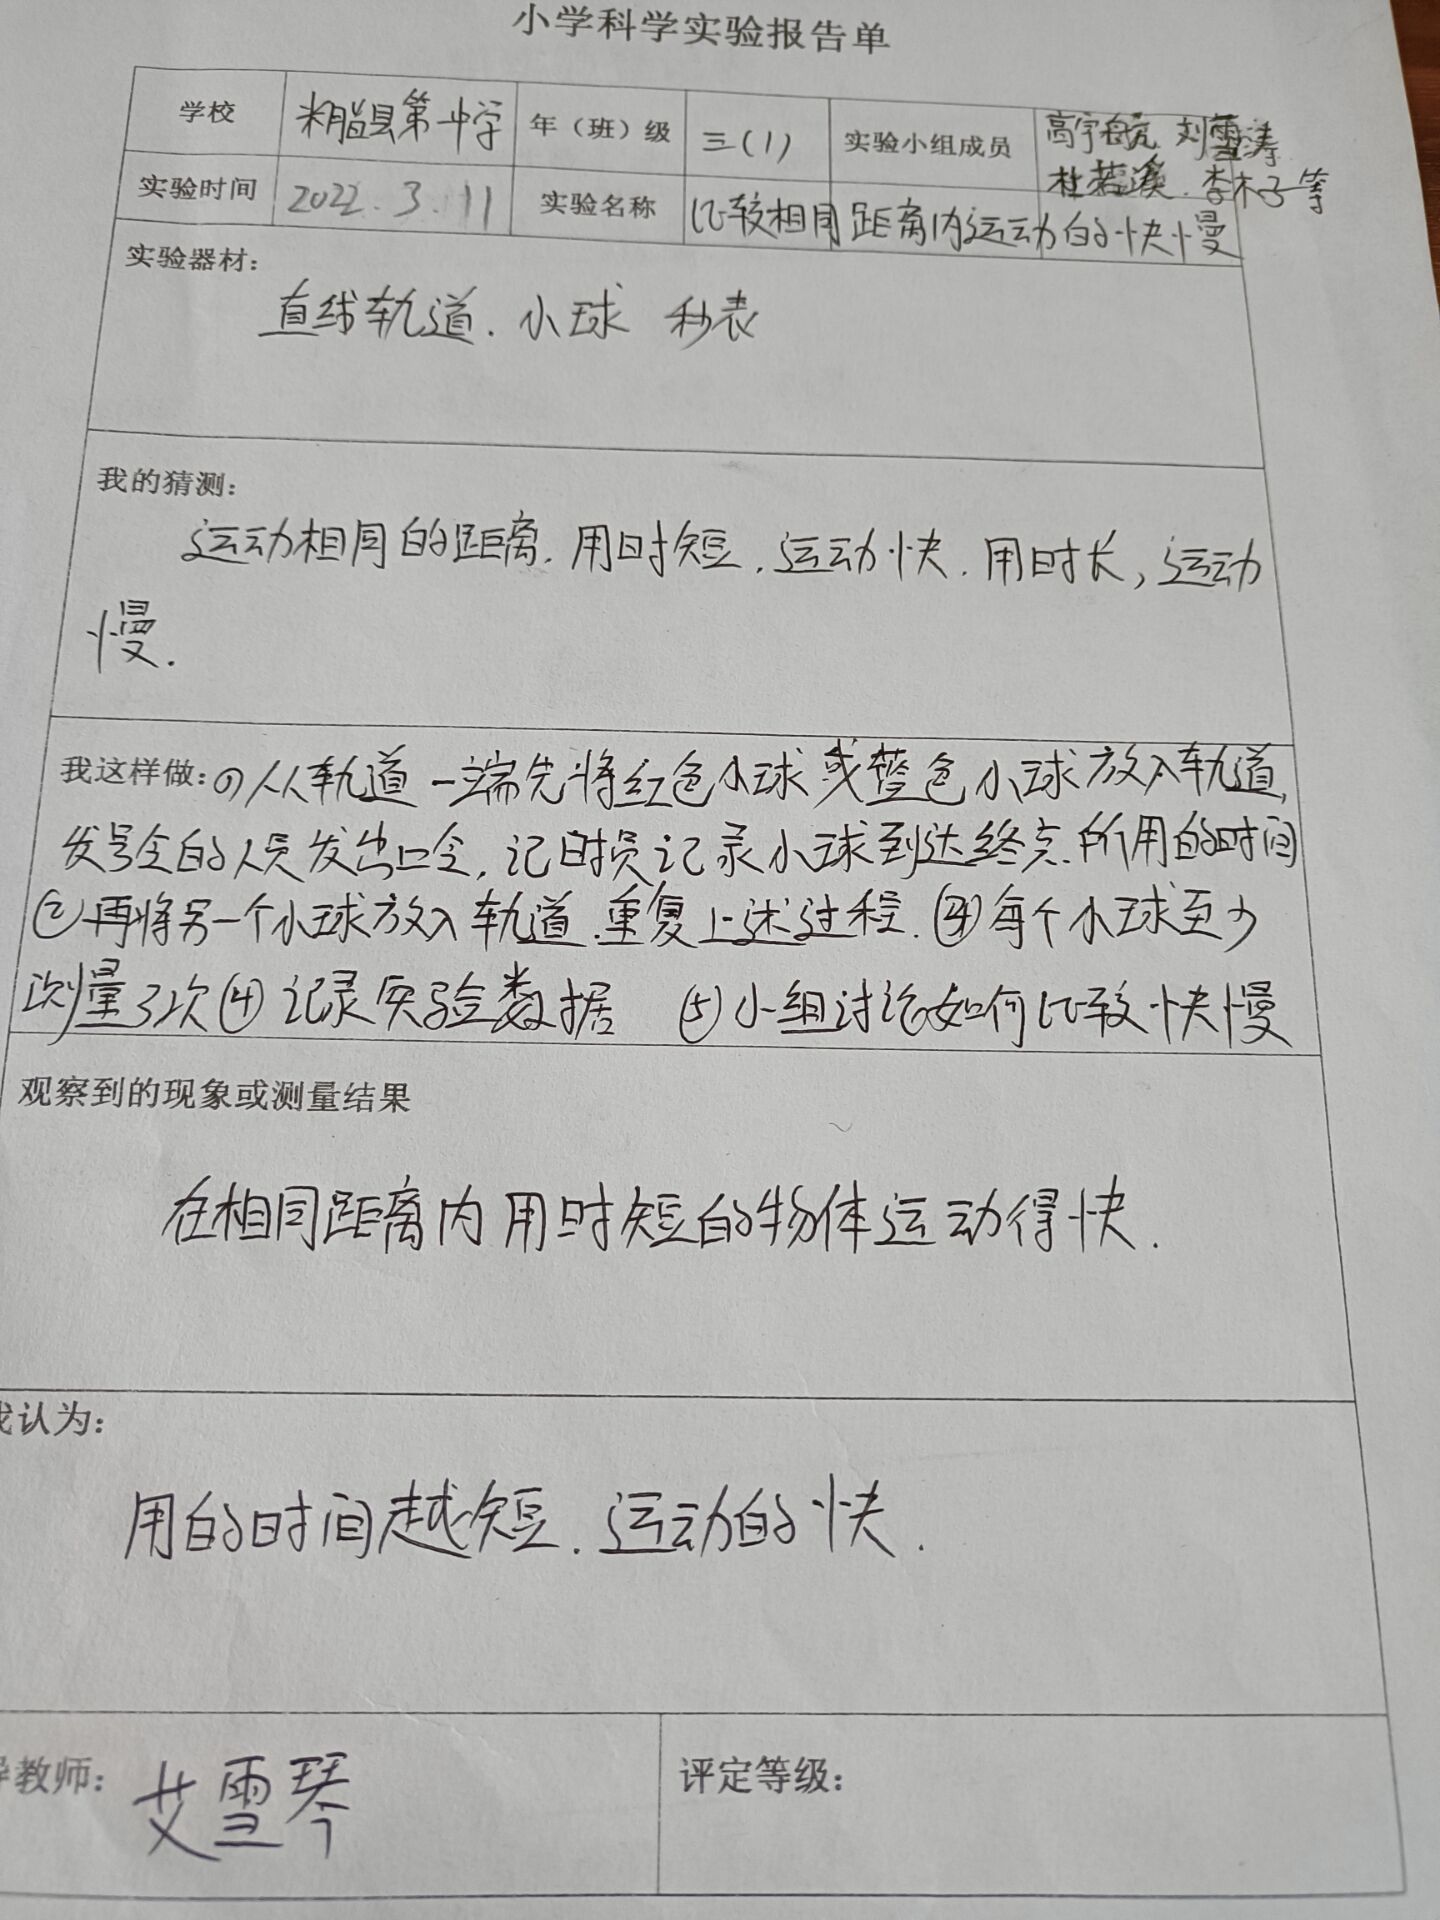 小学科学实验报告单
学校 米脂县第一中学 年（班）级 三(1) 实验小组成员 高宇航 刘雪涛
杜若溪.李木子等
实验时间 2022.3.11 实验名称 比较相同距离内运动的快慢
实验器材：
直线轨道.小球 秒表
我的猜测：
运动相同的距离.用时短.运动快.用时长,运动
慢.
我这样做：(1)从轨道一端先将红色小球或蓝色小球放入轨道,
发号令的人员发出口令,记时员记录小球到达终点.所用的时间
②再将另一个小球放入轨道.重复上述过程.③每个小球至少
测量3次④记录实验数据 ⑤小组讨论如何比较快慢
观察到的现象或测量结果
在相同距离内用时短的物体运动得快.
我认为：
用的时间越短.运动的快.
导教师：艾雪琴 评定等级：